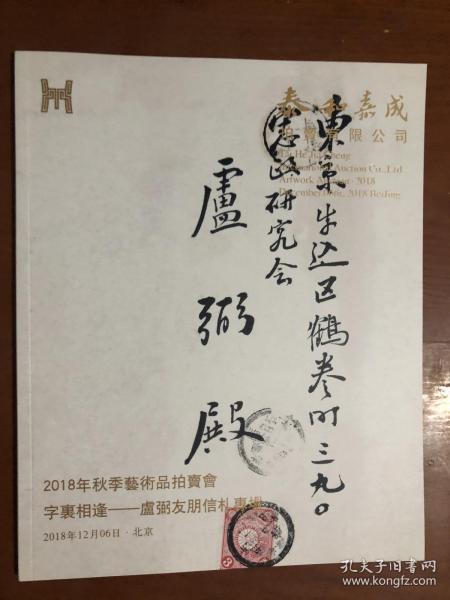 泰和嘉成
拍賣有限公司
Tai He Jia Cheng
International Auction Co.,Ltd
Artwork Auction · 2018
December 06th, 2018 Beijing
東京牛込区鶴巻町三九〇
研究会
盧弼殿
2018年秋季藝術品拍賣會
字裏相逢——盧弼友朋信札專場
2018年12月06日 · 北京
孔夫子旧书网
www.kongfz.com